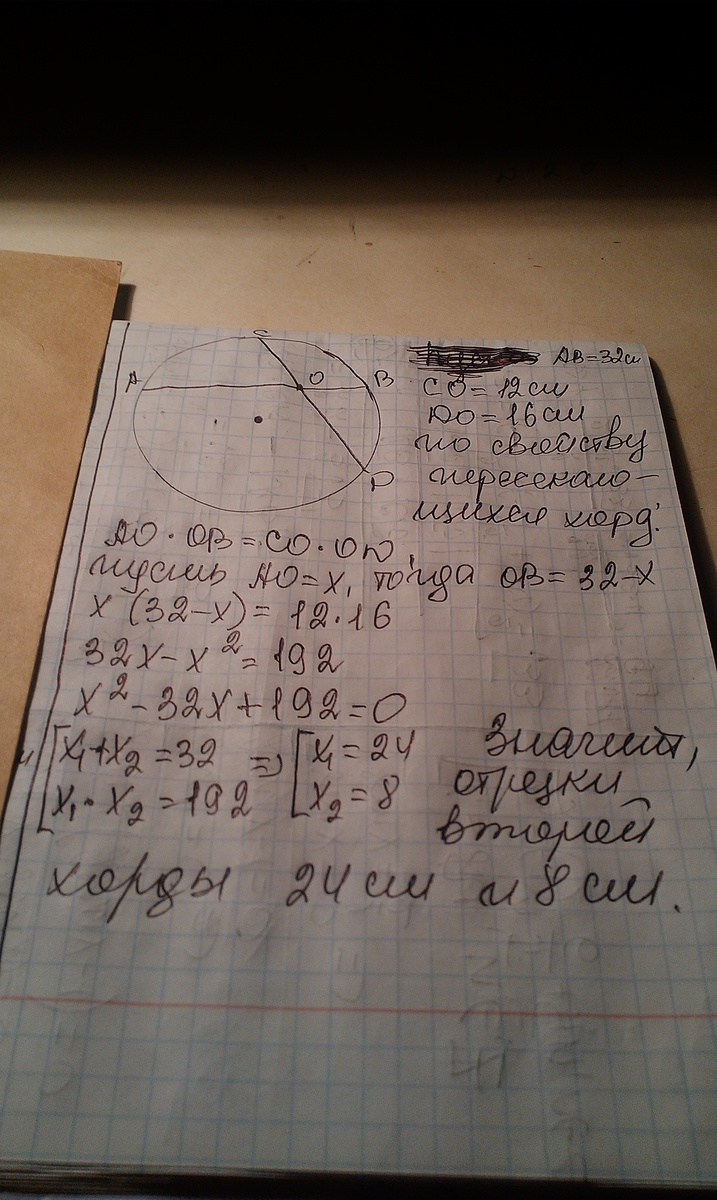 C
A
O
B
D
AB=32см
CO=12см
DO=16см
по свойству
пересекаю-
щихся хорд:
AO·OB=CO·OD,
пусть AO=x, тогда OB=32-x
x(32-x)=12·16
32x-x²=192
x²-32x+192=0
[x₁+x₂=32 => [x₁=24
x₁·x₂=192 x₂=8
Значит,
отрезки
второй
хорды 24см и 8см.